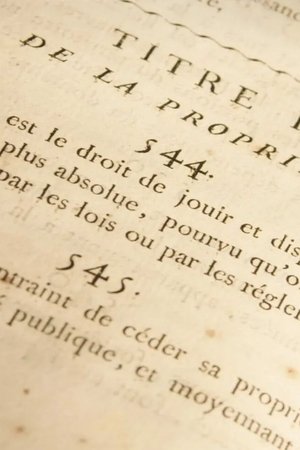 TITRE
DE LA PROPRI
544.
est le droit de jouir et dis
plus absolue, pourvu qu'o
par les lois ou par les régle
545.
ntraint de céder sa propri
publique, et moyennant